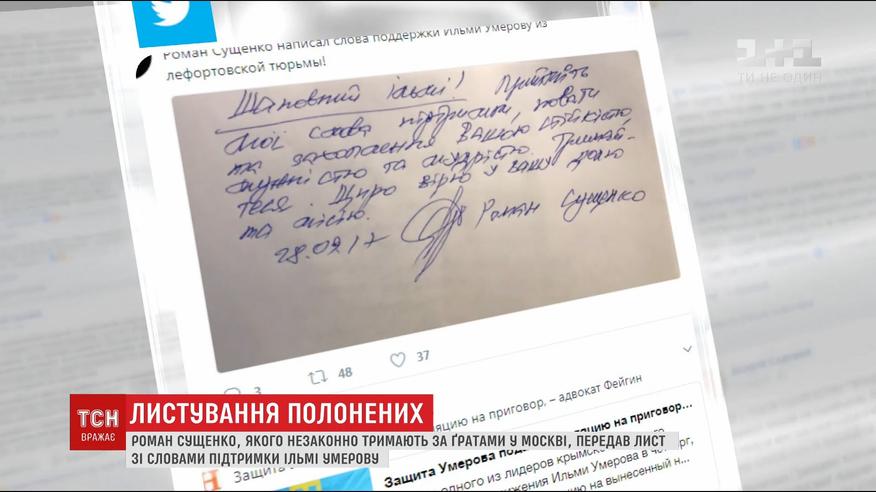 Роман Сущенко написал слова поддержки Ильми Умерову из
лефортовской тюрьмы!
1+1
ТИ НЕ ОДИН
Шановний Ільмі! Прийміть
мої слова підтримки, поваги
та захоплення Вашою стійкістю,
мужністю та мудрістю. Тримай-
теся. Щиро вірю у Вашу долю
та місію.
28.09.17 Роман Сущенко
3 48 37
яцию на приговор, – адвокат Фейгин
ТСН
ВРАЖАЄ
ЛИСТУВАННЯ ПОЛОНЕНИХ
РОМАН СУЩЕНКО, ЯКОГО НЕЗАКОННО ТРИМАЮТЬ ЗА ҐРАТАМИ У МОСКВІ, ПЕРЕДАВ ЛИСТ
ЗІ СЛОВАМИ ПІДТРИМКИ ІЛЬМІ УМЕРОВУ
Защита
Защита Умерова под яцию на приговор...
одного из лидеров крымско
жения Ильми Умерова в четверг,
цию на вынесенный н...